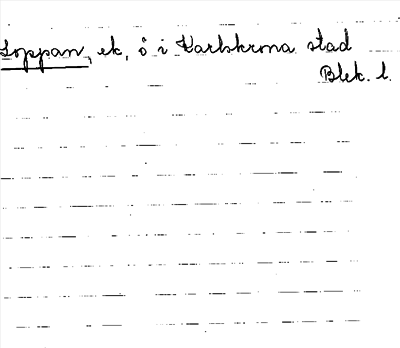 Loppan, ek, ö i Karlskrona stad
Blek. l.